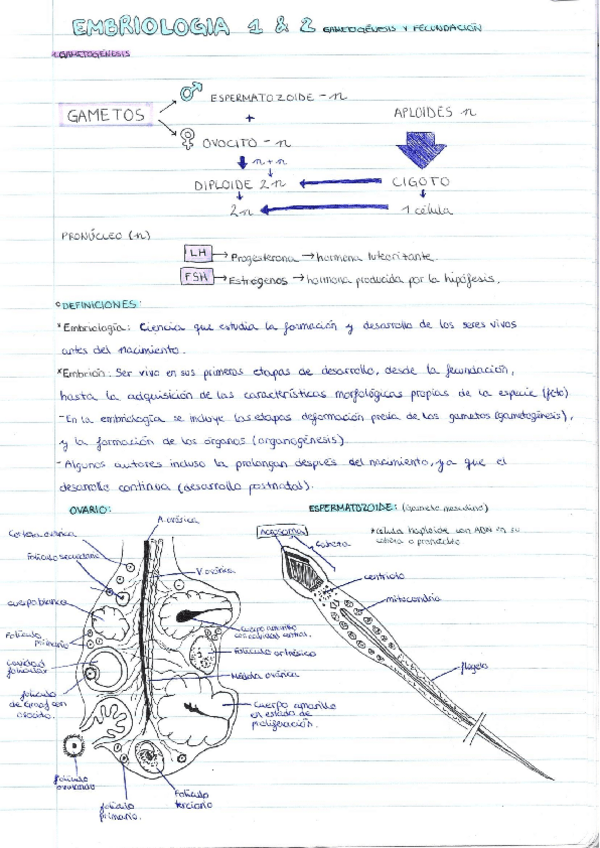 EMBRIOLOGIA 1 & 2 GAMETOGÉNESIS Y FECUNDACIÓN
GAMETOGÉNESIS
GAMETOS
♂ ESPERMATOZOIDE - n
+
♀ OVOCITO - n
APLOIDES n
n + n
DIPLOIDE 2n
CIGOTO
2n
1 célula
PRONÚCLEO (n)
LH → Progesterona → hormona luteorizante.
FSH → Estrógenos → hormona producida por la hipófesis.
DEFINICIONES:
*Embriología: Ciencia que estudia la formación y desarrollo de los seres vivos
antes del nacimiento.
*Embrión: Ser vivo en sus primeras etapas de desarrollo, desde la fecundación,
hasta la adquisición de las características morfológicas propias de la especie (feto)
- En la embriología se incluye las etapas deformación previa de los gametos (gametogénesis),
y la formación de los órganos (organogénesis)
- Algunos autores incluso la prolongan después del nacimiento, ya que el
desarrollo continua (desarrollo postnatal).
OVARIO:
A. ovárica
Corteza ovárica
Folículo secundario
V. ovárica
cuerpo blanco
Folículo primario
Cuerpo amarillo con cavidad central.
Folículo atrésico
Cavidad folicular
Médula ovárica
folículo de Graaf con ovocito.
Cuerpo amarillo en estado de proliferación.
folículo ovulando
folículo primario.
Folículo terciario
ESPERMATOZOIDE: (Gameto masculino)
Acrosoma
cabeza
*célula haploide con ADN en su
cabeza o pronúcleo
centriolo
mitocondria
flagelo